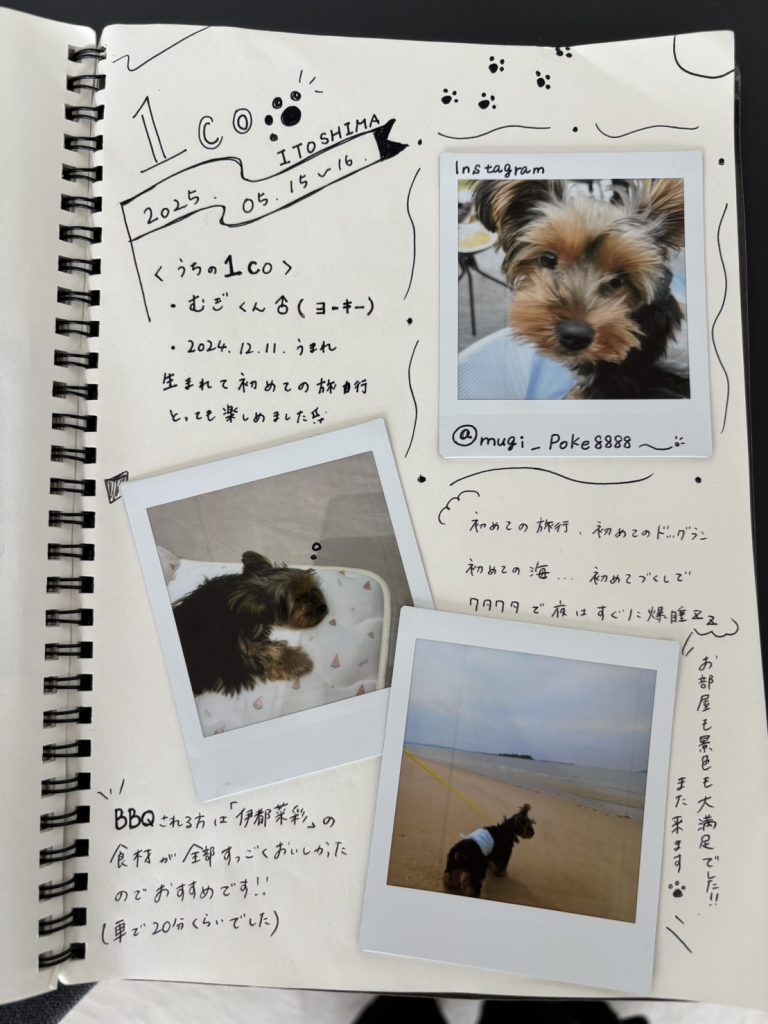 1co
ITOSHIMA
2025. 05. 15〜16.
<うちの1co>
・むぎくん♂(ヨーキー)
・2024.12.11.うまれ
生まれて初めての旅行
とっても楽しめました
Instagram
@mugi_Poke8888
初めての旅行、初めてのドッグラン
初めての海...初めてづくしで
クタクタで夜はすぐに爆睡zz
お部屋も景色も大満足でした!!
また来ます
BBQされる方は「伊都菜彩」の
食材が全部すっごくおいしかった
のでおすすめです!!
(車で20分くらいでした)